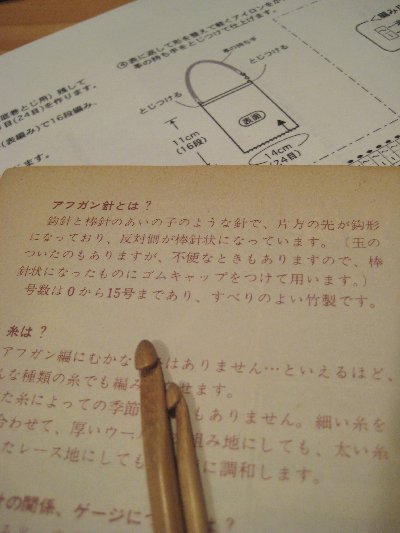 底巻とじ用)残して
目(24目)を作ります。
(表編み)で16段編み、
ます。
④表に返して形を整えて軽くアイロンをか
革の持ち手をとじつけて仕上げます。
革の持ち手
とじつける
とじつける
表面
11cm
(16段)
14cm
(24目)
アフガン針とは?
鈎針と棒針のあいの子のような針で、片方の先が鈎形
になっており、反対側が棒針状になっています。(玉の
ついたのもありますが、不便なときもありますので、棒
針状になったものにゴムキャップをつけて用います。)
号数は0から15号まであり、すべりのよい竹製です。
糸は?
アフガン編にむかな はありません…といえるほど、
んな種類の糸でも編み せます。
た糸によっての季節 もありません。細い糸を
合わせて、厚いウー 組み地にしても、太い糸
たレース地にしても に調和します。
の関係、ゲージに は?